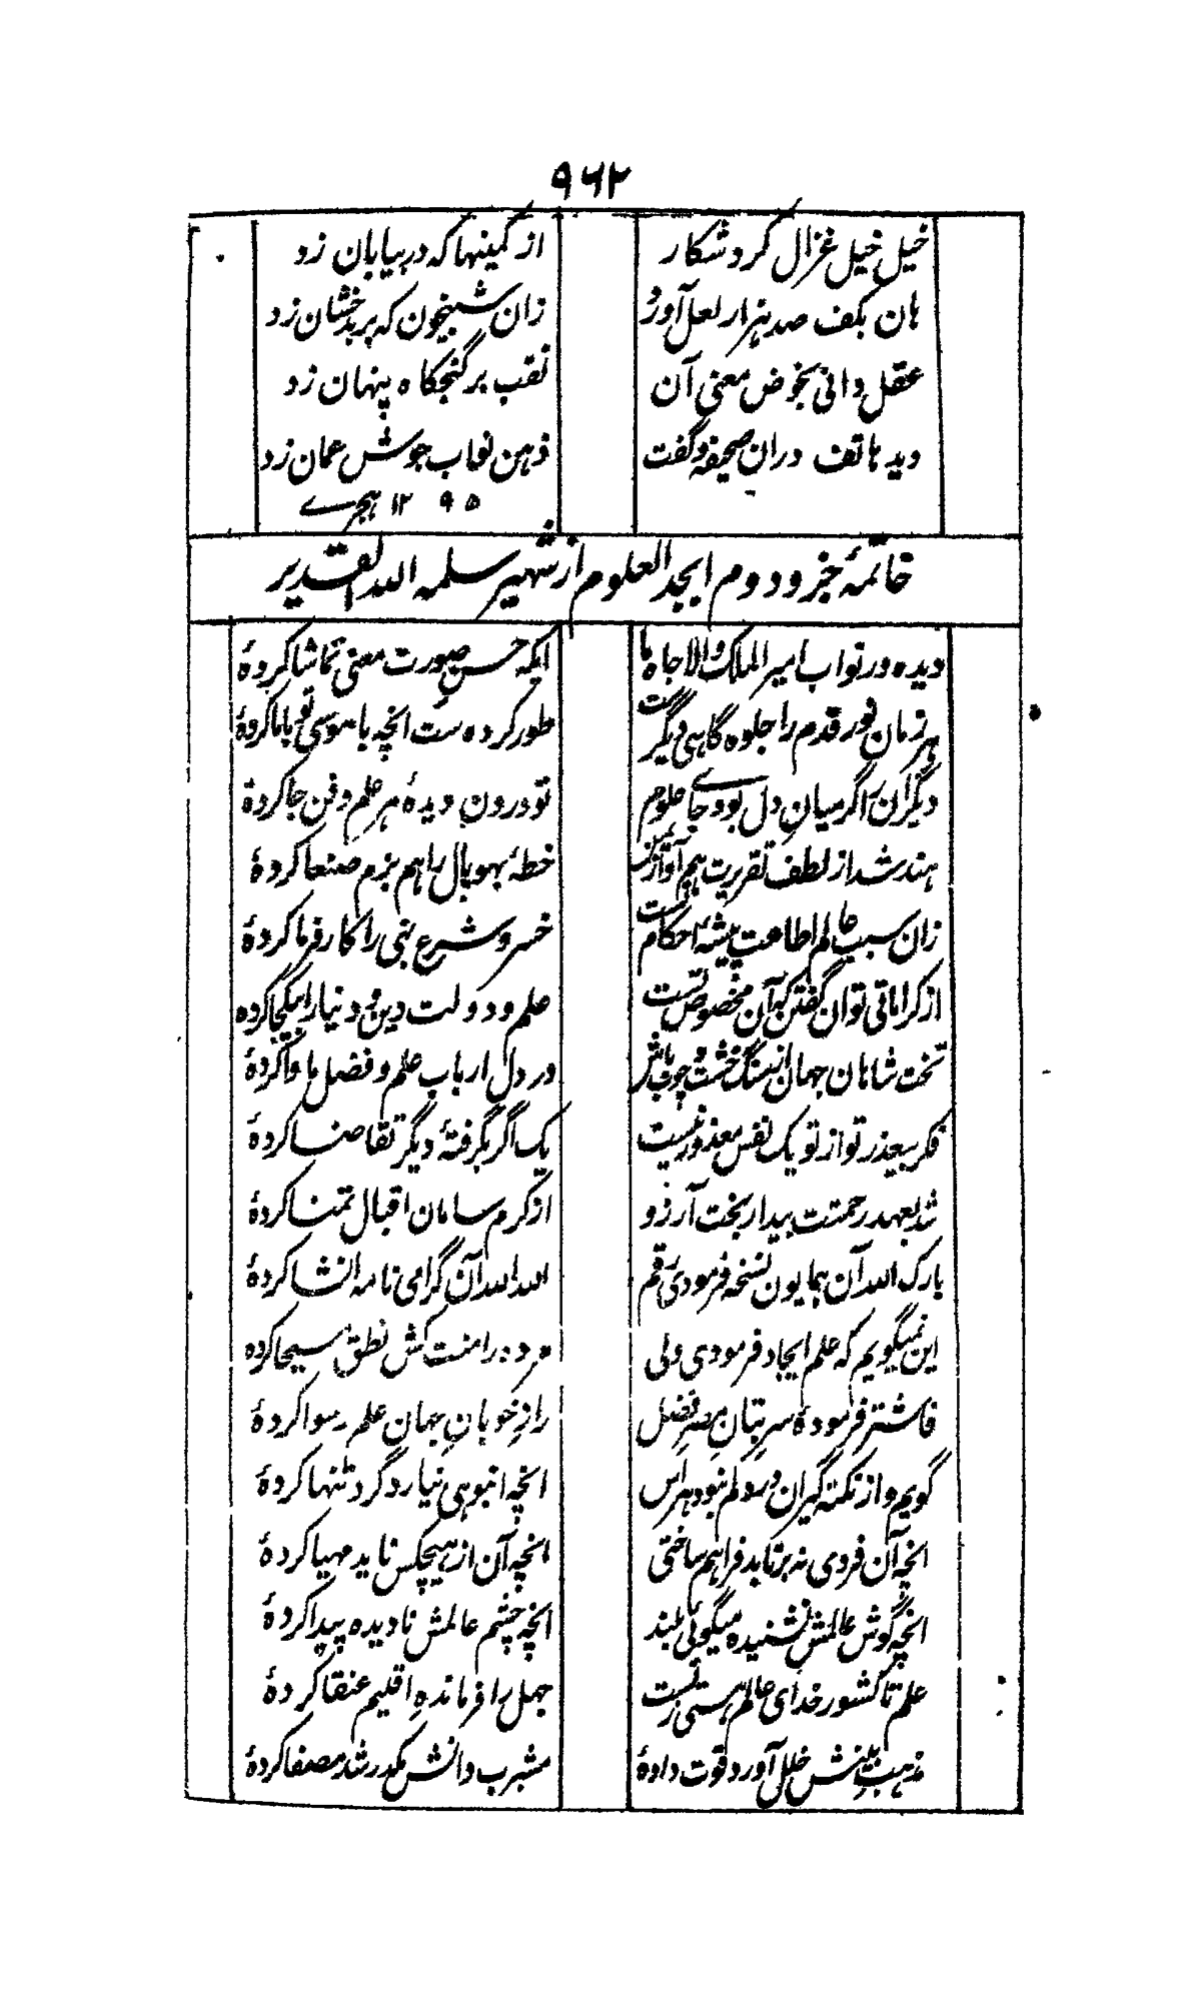 ۹۶۲
خیل خیل غزال کرد شکار از کمینها که در بیابان زد
هان بکف صد هزار لعل آورد زان شبیخون که بر بدخشان زد
عقل دانی بخوض معنی آن نقب بر گنجگاه پنهان زد
دید هاتف دران صحیفه و گفت ذهن نواب جوش عمان زد
۱۲۹۵ هجرے
خاتمهٔ جزو دوم ابجد العلوم از شهیر سلمه الله القدیر
دیده ور نواب امیر الملک والا جاه ما ایکه حسن صورت معنی تماشا کردهٔ
هر زمان نور قدم را جلوه گاهی دیگر ست طور کرده ست انچه با موسی تو با ما کردهٔ
دیگران را گر میان دل بود جاے علوم تو درون دیدهٔ هر علم و فن جا کردهٔ
هند شد از لطف تقریرت هم آواز یمن خطهٔ بهوپال را هم بزم صنعا کردهٔ
زان سبب عالم اطاعت پیشهٔ احکام تست خسرو شرع نبی را کارفرما کردهٔ
از کراماتی توان گفتن که آن مخصوص تست علم و دولت دین و دنیا را بیکجا کرده
تخت شاهان جهان از سنگ و خشت و چوب باش در دل ارباب علم و فضل ماوا کردهٔ
فکر بیعذر تو از تو یک نفس معذور نیست یک اگر بگرفتهٔ دیگر تقاضا کردهٔ
شد بعهد رحمتت بیدار بخت آرزو از کرم سامان اقبال تمنا کردهٔ
بارک الله آن همایون نسخه فرمودی رقم الله الله آن گرامی نامه انشا کردهٔ
این نمیگویم که علم ایجاد فرمودی ولی مرده را منت کش نطق مسیحا کرده
فاشتر فرمودهٔ سر بتان مصر فضل راز خوبان جهان علم رسوا کردهٔ
گویم و از نکته گیران در دلم نبود هراس انچه انبوهی نیارد کرد تنها کردهٔ
انچه آن فردی نه برتابد فراهم ساختی انچه آن از هیچکس ناید مهیا کردهٔ
انچه گوش عالمش نشنیده میگوئی بلند انچه چشم عالمش نادیده پیدا کردهٔ
علم تا کشور خدای عالم هستی تست جهل را فرمانده اقلیم عنقا کردهٔ
مذهب بینش خلل آورد قوت دادهٔ مشرب دانش مکدر شد مصفا کردهٔ